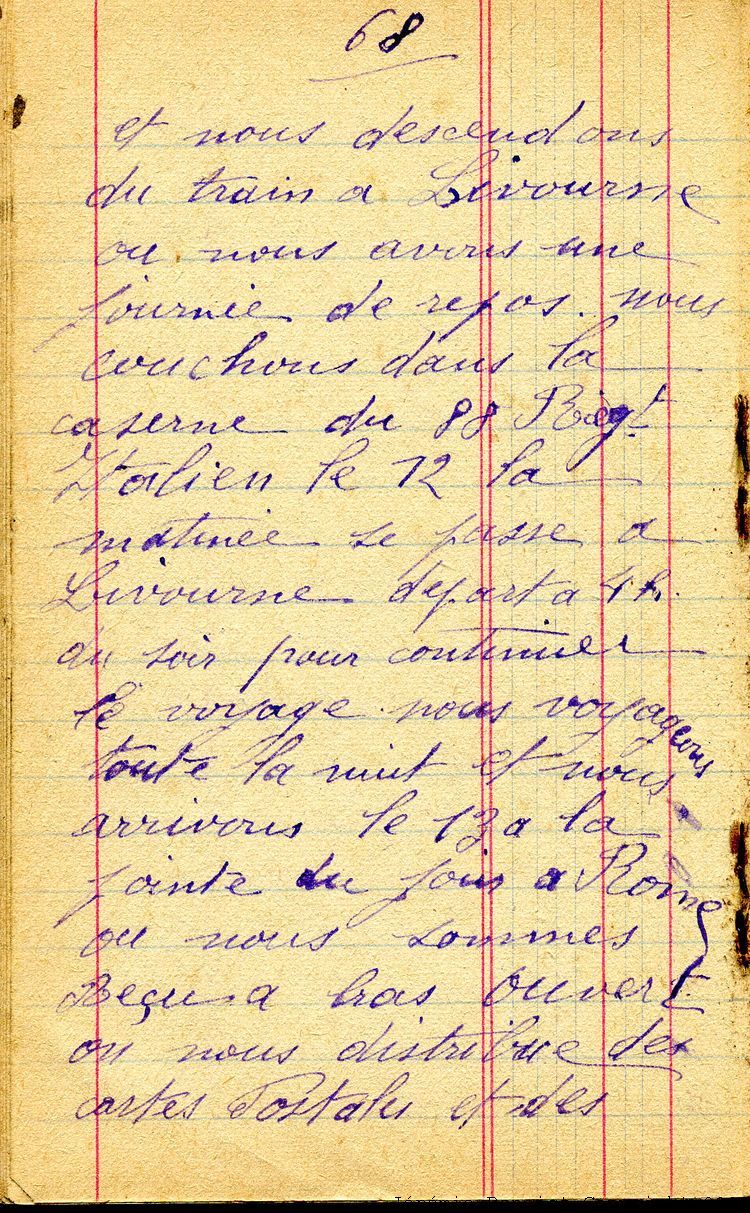 68
et nous descendons
du train a Livourne
ou nous avons une
journée de repos. nous
couchons dans la
caserne du 88 Riegt
Italien le 12 la
matinée se passe a
Livourne depart a 4 h.
du soir pour continuer
le voyage nous voyageons
toute la nuit et nous
arrivons le 13 a la
pointe du jour a Rome
ou nous sommes
Reçu a bras ouvert
on nous distribue des
cartes Postales et des